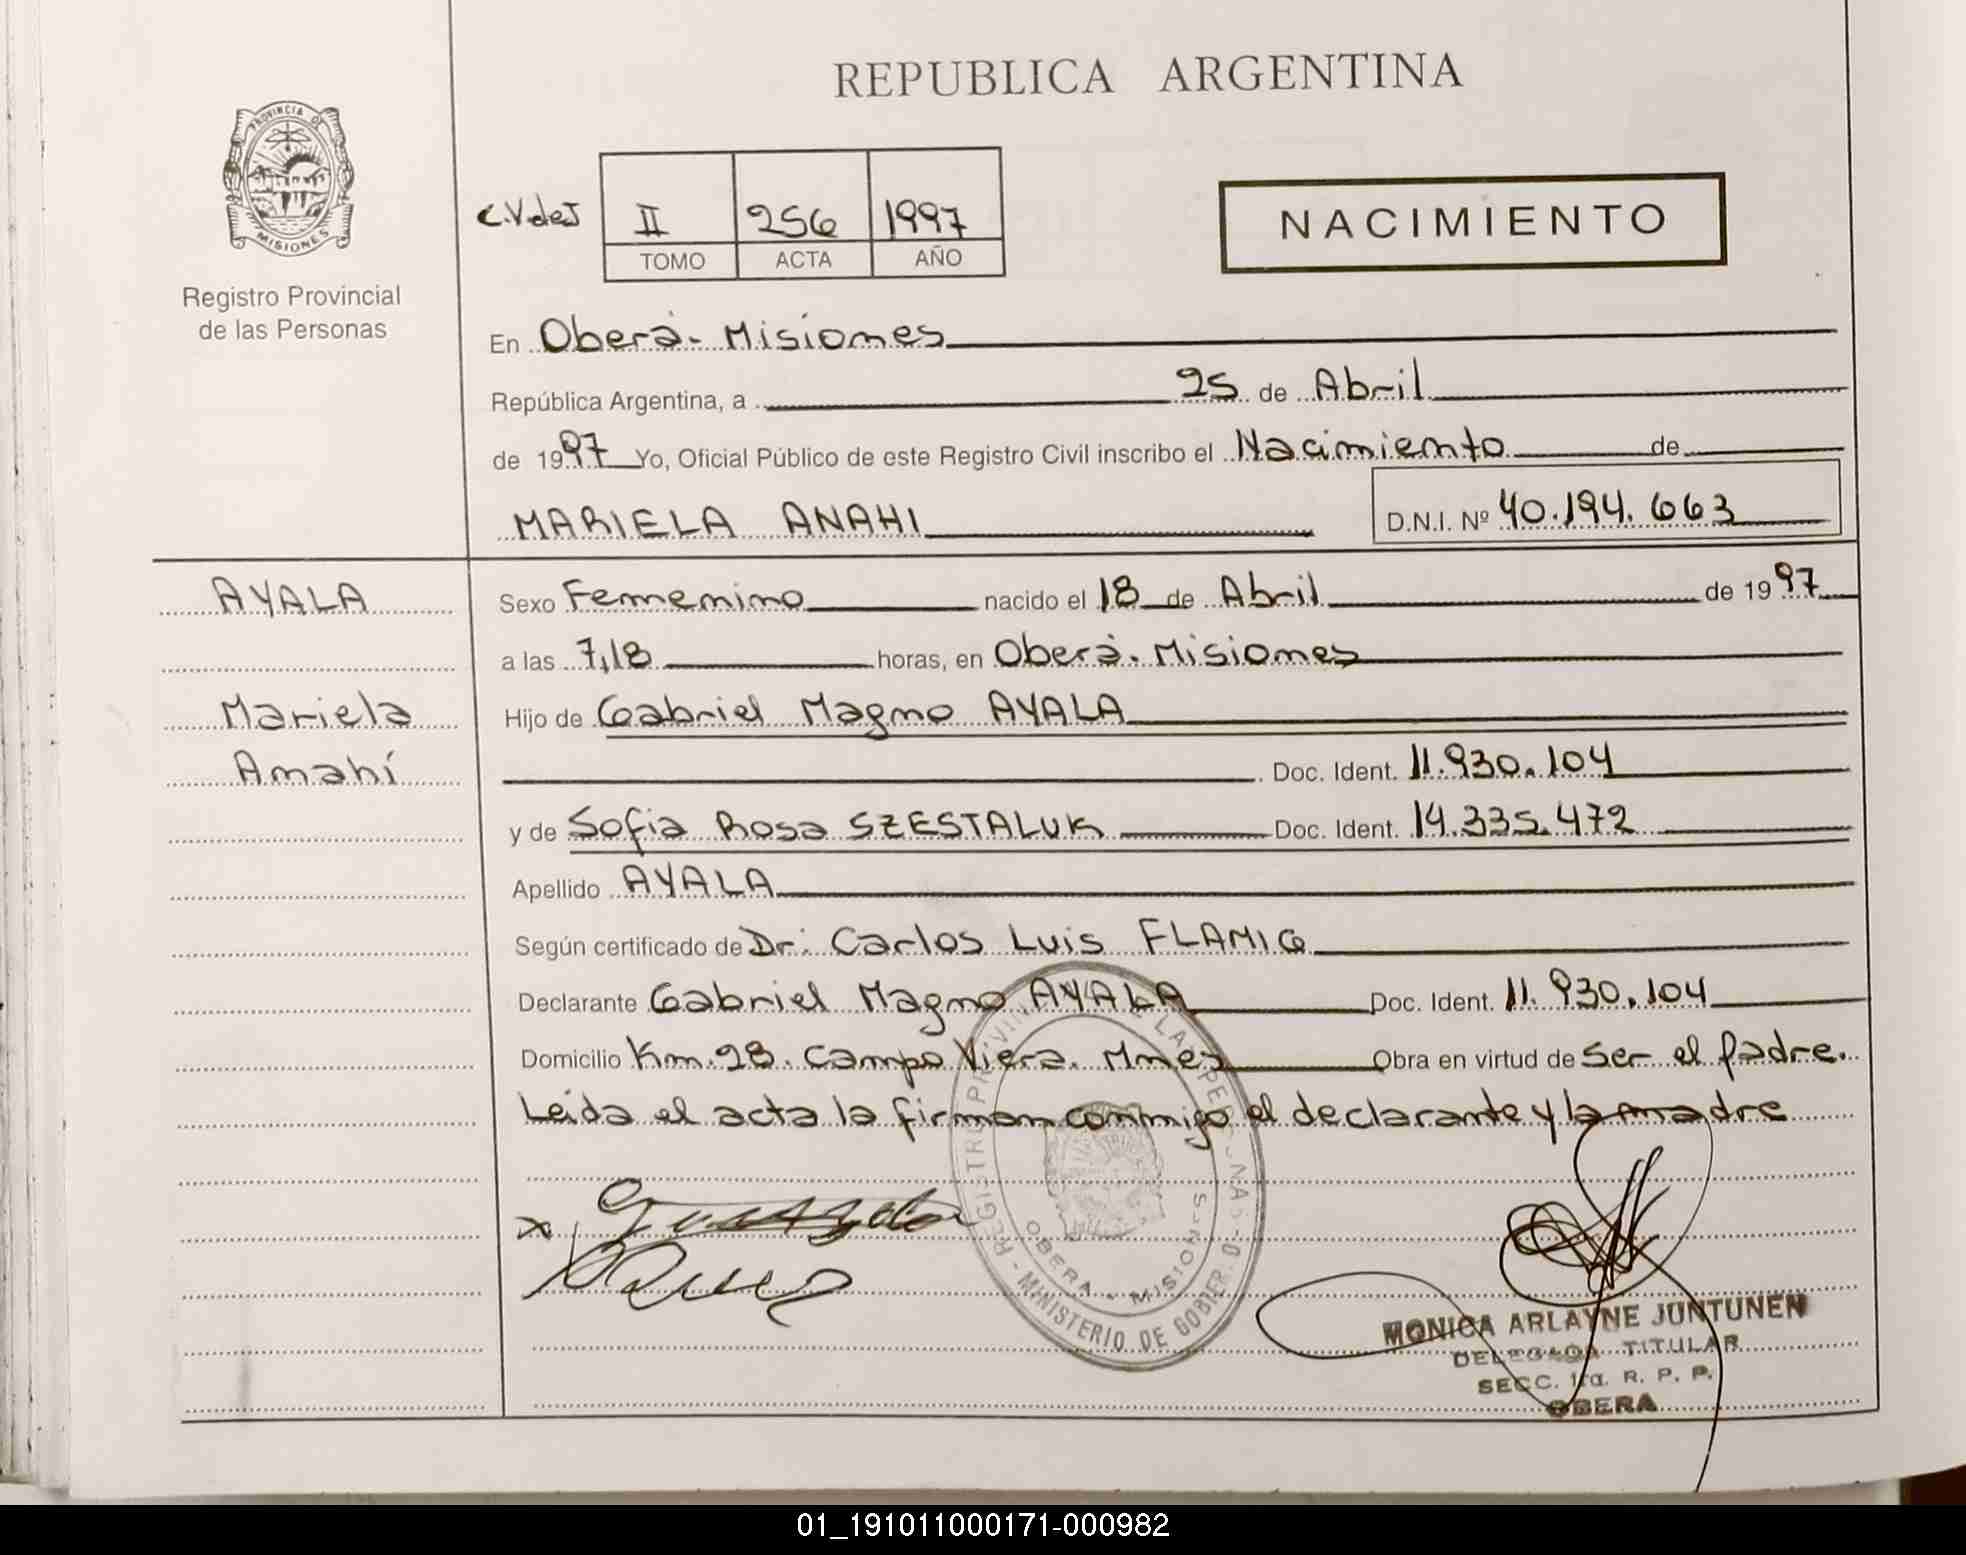 REPUBLICA ARGENTINA
PROVINCIA DE
MISIONES
Registro Provincial
de las Personas
C.VdeJ II 256 1997
TOMO ACTA AÑO
NACIMIENTO
En Oberá - Misiones
República Argentina, a 25 de Abril
de 1997 Yo, Oficial Público de este Registro Civil inscribo el Nacimiento de
MARIELA ANAHI D.N.I. Nº 40.194.663
AYALA Sexo Femenino nacido el 18 de Abril de 1997
a las 7,18 horas, en Oberá. Misiones
Mariela Hijo de Gabriel Magno AYALA
Anahí Doc. Ident. 11.930.104
y de Sofia Rosa SZESTALUK Doc. Ident. 14.335.472
Apellido AYALA
Según certificado de Dr: Carlos Luis FLAMIG
Declarante Gabriel Magno AYALA Doc. Ident. 11.930.104
Domicilio Km. 28. Campo Viera. Mnes Obra en virtud de Ser el padre.
Leida el acta la firman conmigo el declarante y la madre
REGISTRO PROVINCIAL DE LAS PERSONAS - MINISTERIO DE GOBIERNO
OBERA - MISIONES
X
MONICA ARLAYNE JUNTUNEN
DELEGADA TITULAR
SECC. 1ra. R. P. P.
OBERA
01_191011000171-000982